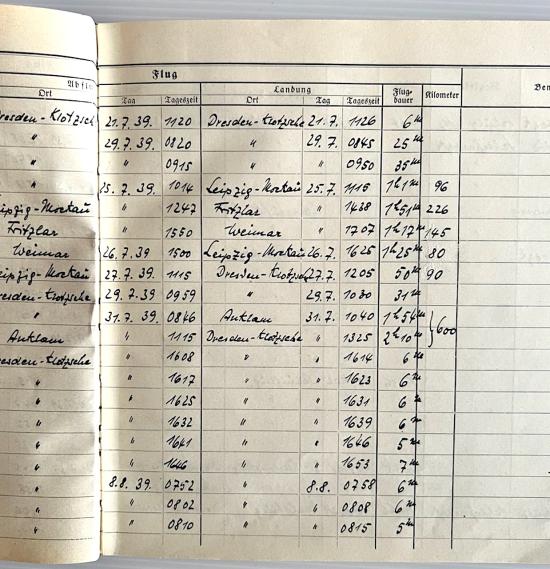 Flug
Abfl
Landung
Ort Tag Tageszeit Ort Tag Tageszeit Flug- dauer Kilometer Be
Dresden-Klotzsche 21.7.39. 1120 Dresden-Klotzsche 21.7. 1126 6 m
" 29.7.39. 0820 " 29.7. 0845 25 m
" " 0915 " " 0950 35 m
" 25.7.39. 1014 Leipzig-Mockau 25.7. 1115 1h1m 96
Leipzig-Mockau " 1247 Fritzlar " 1438 1h51m 226
Fritzlar " 1550 Weimar " 1707 1h17m 145
Weimar 26.7.39 1500 Leipzig-Mockau 26.7. 1625 1h25m 80
Leipzig-Mockau 27.7.39. 1115 Dresden-Klotzsche 27.7. 1205 50 m 90
Dresden-Klotzsche 29.7.39 0959 " 29.7. 1030 31 m
" 31.7.39. 0846 Anklam 31.7. 1040 1h54m
Anklam " 1115 Dresden-Klotzsche " 1325 2h10m }600
Dresden-Klotzsche " 1608 " " 1614 6 m
" " 1617 " " 1623 6 m
" " 1625 " " 1631 6 m
" " 1632 " " 1639 6 m
" " 1641 " " 1646 5 m
" " 1646 " " 1653 7 m
" 8.8.39. 0752 " 8.8. 0758 6 m
" " 0802 " " 0808 6 m
" " 0810 " " 0815 5 m